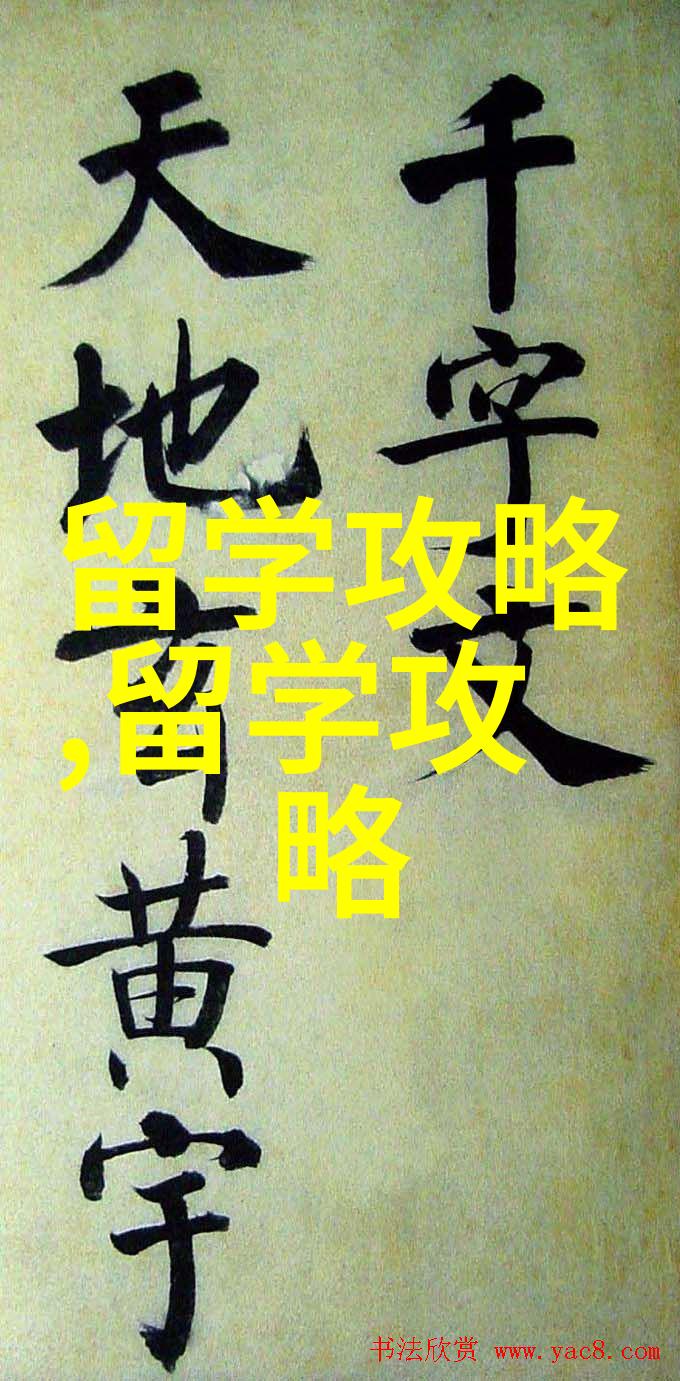 千字文
天地玄黄宇
留学攻略
,留学攻
略
书法欣赏 www.yac8.com